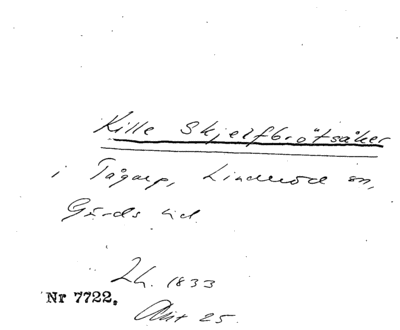 Kille Skjelfbrötsåker
i Tågarp, Linderöd sn,
Gärds hd.
Lh. 1833
Nr 7722.
Akt 25.